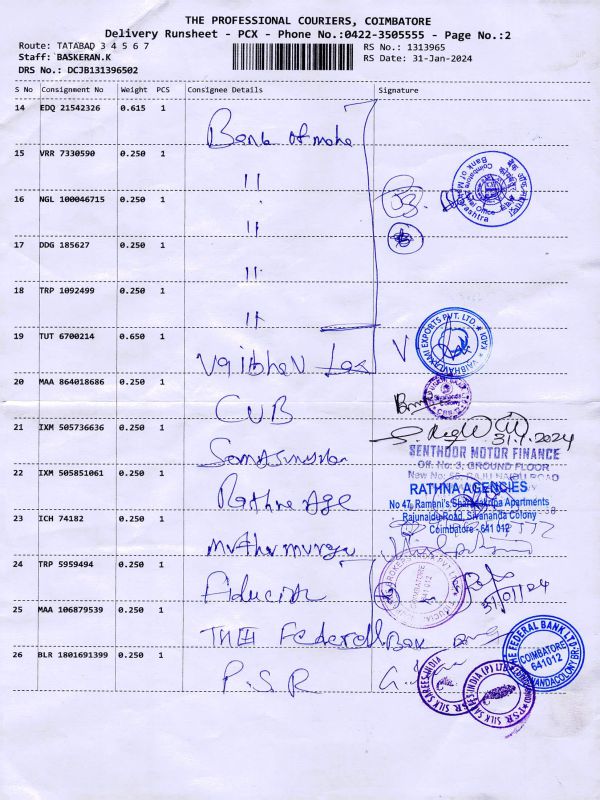 THE PROFESSIONAL COURIERS, COIMBATORE
Delivery Runsheet - PCX - Phone No.:0422-3505555 - Page No.:2
Route: TATABAD 3 4 5 6 7
RS No.: 1313965
Staff: BASKERAN.K
RS Date: 31-Jan-2024
DRS No.: DCJB131396502
S No Consignment No Weight PCS Consignee Details Signature
14 EDQ 21542326 0.615 1
Bank of maha
15 VRR 7330590 0.250 1
16 NGL 100046715 0.250 1
17 DDG 185627 0.250 1
18 TRP 1092499 0.250 1
19 TUT 6700214 0.650 1
Vaibhav
VAIBHAVLAXMI EXPORTS PVT. LTD.
20 MAA 864018686 0.250 1
CUB
21 IXM 505736636 0.250 1
31.1.2024
SENTHOOR MOTOR FINANCE
Off. No: 3, GROUND FLOOR
22 IXM 505851061 0.250 1
Rathna Age
RATHNA AGENCIES
No 47, Ramani's Sharanalaya Apartments
Rajunaidu Road, Sivananda Colony
Coimbatore - 641 012
23 ICH 74182 0.250 1
24 TRP 5959494 0.250 1
31/01/24
25 MAA 106879539 0.250 1
THE Federal Ban
THE FEDERAL BANK LTD
COIMBATORE
641012
26 BLR 1801691399 0.250 1
P.S.R
P.S.R. SILK SAREES INDIA (P) LTD